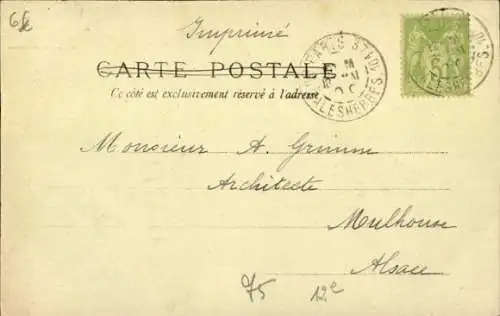 Imprimé
CARTE POSTALE
Ce côté est exclusivement réservé à l'adresse
Monsieur A. Grimm
Architecte
Mulhouse
Alsace
75 12e